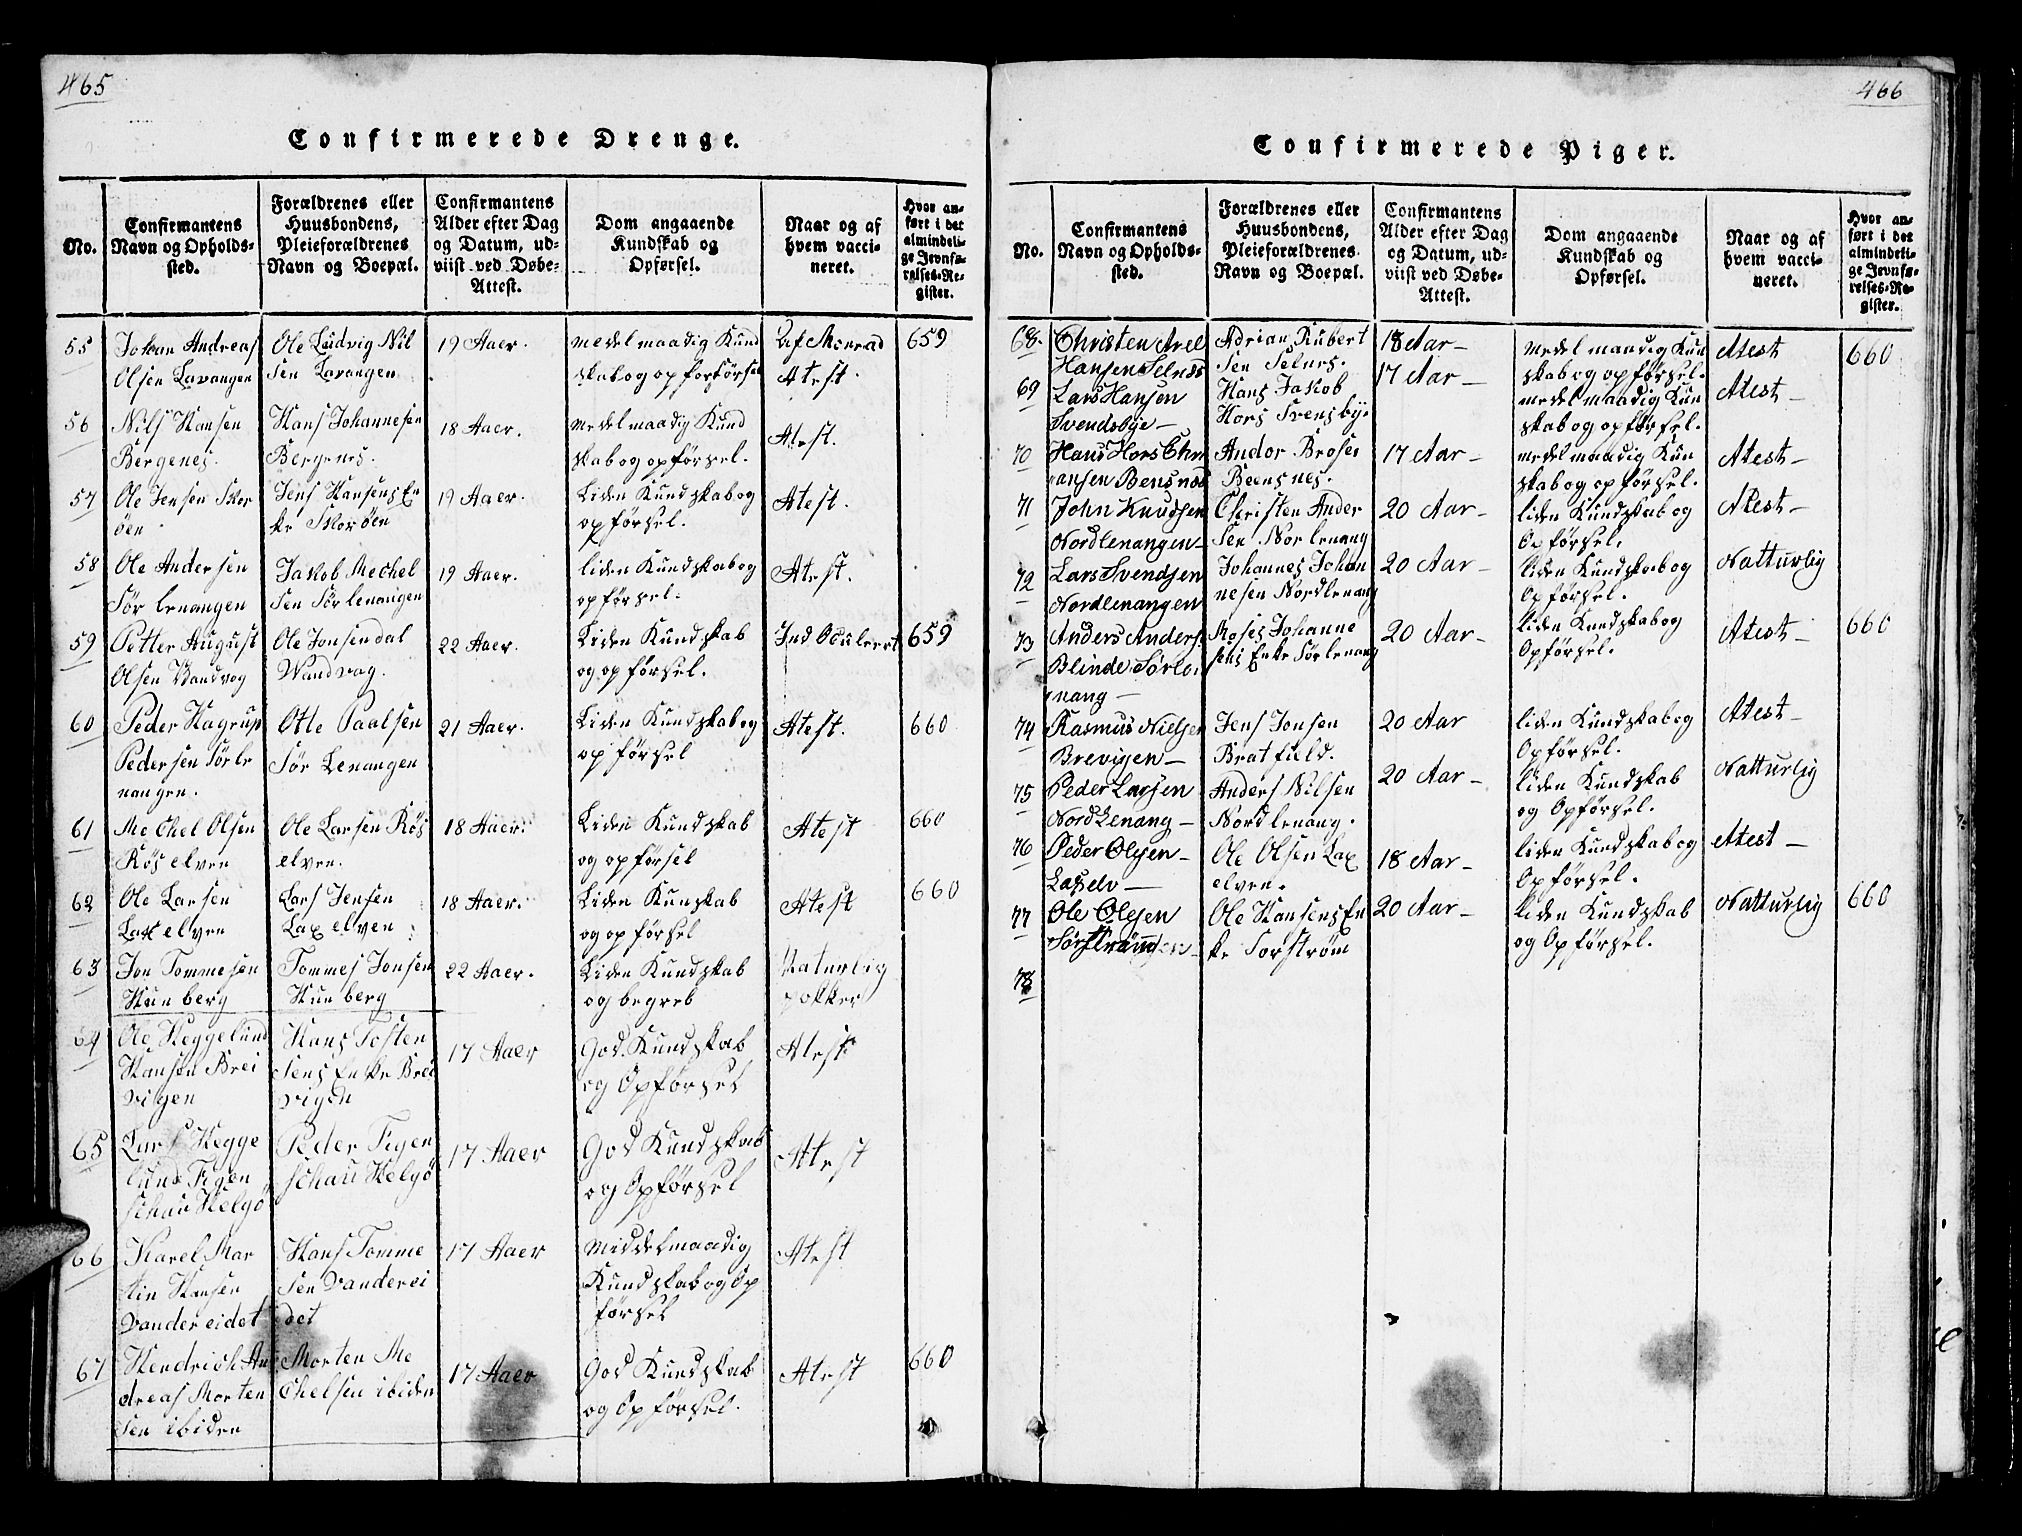 465
Confirmerede Drenge.
No.
Confirmantens
Navn og Opholds-
sted.
Forældrenes eller
Huusbondens,
Pleieforældrenes
Navn og Boepæl.
Confirmantens
Alder efter Dag
og Datum, ud-
viist ved Døbe-
Attest.
Dom angaaende
Kundskab og
Opførsel.
Naar og af
hvem vacci-
neret.
Hvor an-
ført i det
almindeli-
ge Jevnfø-
relses-Re-
gister.
55
Johan Andreas
Olsen Lavangen
Ole Ludvig Nil
sen Lavangen
19 Aaer.
medelmaadig Kund
skab og opforførsel
Af Monrad
Atest.
659
56
Nils Hansen
Bergenes.
Hans Johannesen
Bergenes.
18 Aaer.
medelmaadig Kund
skab og opförsel.
Atest.
57
Ole Jensen Skor
öen
Jens Hansens En
ke Skoröen
19 Aaer.
Liden Kundskab og
opförsel.
Atest.
58
Ole Andersen
Sör lenangen
Jakob Mechel
sen Sörlenangen
19 Aaer.
liden Kundskab og
opförsel.
Atest.
59
Petter August
Olsen Vandvog
Ole Jonsendal
Wandvag.
22 Aaer.
Liden Kundskab
og opförsel.
Ind Oculeert
659
60
Peder Hagrup
Pedersen Sörle
nangen.
Otte Paalsen
Sör Lenangen
21 Aaer.
Liden Kundskab og
opförsel
Atest.
660
61
Mechel Olsen
Rös elven
Ole Larsen Rös
elven.
18 Aaer.
Liden Kundskab
og opförsel
Atest
660
62
Ole Larsen
Lax elven
Lars Jensen
Lax elven
18 Aaer.
Liden Kunskab
og opförsel
Atest
660
63
Jon Tommesen
Kunberg
Tommes Jonsen
Kunberg
22 Aaer.
Liden Kundskab
og begreb
Naturlig
pokker
64
Ole Heggelund
Hansen Brei
vigen
Hans Tosten
sens Enke Brei
vigen
17 Aaer
God Kundskab
og Opförsel
Atest
65
Lars Hegge
lund Figen
schau Helgö
Peder Figen
schau Helgö
17 Aaer
God Kundskab
og Opförsel
Atest
66
Karel Mar
tin Hansen
Vandereidet
Hans Tomme
sen Vanderei
det
17 Aaer
Middelmaadig
Kundskab og Op
försel
Atest
67
Hendrich An
dreas Morten
sen ibiden
Morten Me
Chelsen ibiden
17 Aaer
God Kundskab
og Opförsel.
Atest
660
466
Confirmerede Piger.
No.
Confirmantens
Navn og Opholds-
sted.
Forældrenes eller
Huusbondens,
Pleieforældrenes
Navn og Boepæl.
Confirmantens
Alder efter Dag
og Datum, ud-
viist ved Døbe-
Attest.
Dom angaaende
Kundskab og
Opførsel.
Naar og af
hvem vacci-
neret.
Hvor an-
ført i det
almindeli-
ge Jevnfø-
relses-Re-
gister.
68.
Christen Axel
Hansen Selnæs
Adrian Rubert
sen Selnes.
18 Aar—
medelmaadig Kun
skab og opförsel.
Atest
660
69
Lars Hansen
Svendsbye—
Hans Jakob
Hors Svensbye
17 Aar—
medelmaadig Kun
skab og opförsel.
Atest—
70
Hans Hors Chri
ansen Bensnæs
Andor Broser
Beensnes.
17 Aar—
medelmaadig Kun
skab og opförsel.
Atest—
71
John Knudsen
Nordlenangen—
Christen Ander
sen Norlenang
20 Aar—
liden Kundskab og
Opförsel.
Atest—
72
Lars Svendsen
Nordlenangen
Johannes Johan
nesen Nordlenang
20 Aar—
liden Kundskab og
Opförsel.
Natturlig
73
Anders Anders.
Blinde Sörle
nang—
Moses Johanne
sens Enke Sörlenang
20 Aar—
liden Kundskab og
Opförsel.
Atest—
660
74
Rasmus Nielsen
Brevigen—
Jens Jonsen
Bratfield.
20 Aar
liden Kundskab og
Opförsel.
Atest—
75
Peder Larsen
Nord Lenang—
Anders Nilsen
Nordlenang.
20 Aar—
liden Kundskab
og Opförsel.
Natturlig
76
Peder Olesen—
Laxelv—
Ole Olsen Lax
elven.
18 Aar—
liden Kundskab og
Opförsel.
Atest—
77
Ole Olesen
Sörströmmen—
Ole Hansens En
ke Sorström
20 Aar—
liden Kundskab
og Opförsel.
Natturlig
660
78